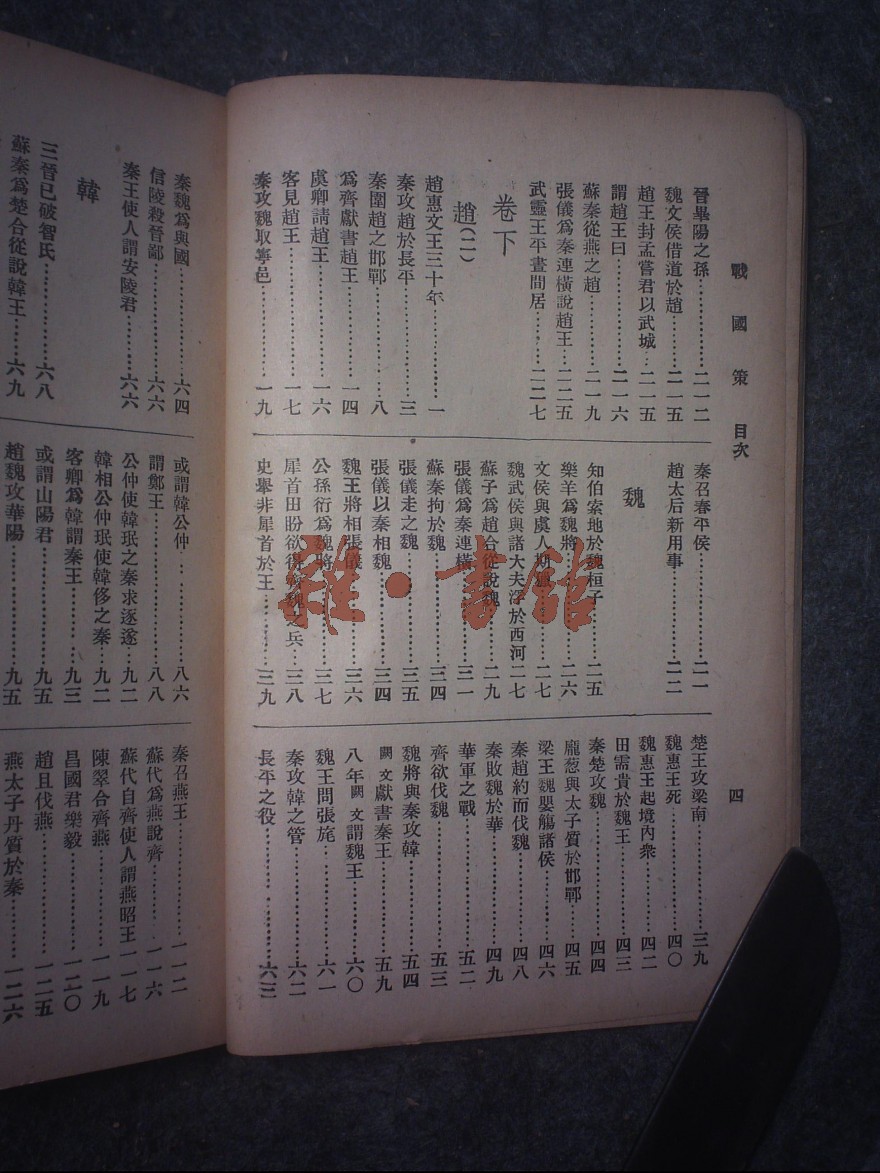 戰國策 目次
四
晉畢陽之孫……………二一二
魏文侯借道於趙…………二一五
趙王封孟嘗君以武城……二一五
謂趙王曰………………二一六
蘇秦從燕之趙…………二一九
張儀爲秦連橫說趙王……二二五
武靈王平晝間居………二二七
卷下
趙(二)
趙惠文王三十年…………一
秦攻趙於長平……………三
秦圍趙之邯鄲……………八
爲齊獻書趙王……………一四
虞卿請趙王………………一六
客見趙王…………………一七
秦攻魏取寧邑……………一九
秦召春平侯………………二一
趙太后新用事……………二二
魏
知伯索地於魏桓子………二五
樂羊爲魏將………………二六
文侯與虞人期獵…………二七
魏武侯與諸大夫浮於西河 二七
蘇子爲趙合從說魏………二九
張儀爲秦連橫……………三一
蘇秦拘於魏………………三四
張儀走之魏………………三五
張儀以秦相魏……………三四
魏王將相張儀……………三六
公孫衍爲魏將……………三七
犀首田盼欲得齊魏之兵…三八
史舉非犀首於王…………三九
楚王攻梁南………………三九
魏惠王死…………………四〇
魏惠王起境內衆…………四二
田需貴於魏王……………四三
秦楚攻魏…………………四四
龐葱與太子質於邯鄲……四五
梁王魏嬰觴諸侯…………四六
秦趙約而伐魏……………四八
秦敗魏於華………………四九
華軍之戰…………………五二
齊欲伐魏…………………五三
魏將與秦攻韓……………五四
闕文獻書秦王……………五九
八年闕文謂魏王…………六〇
魏王問張旄………………六一
秦攻韓之管………………六二
長平之役…………………六三
秦魏爲與國………………六四
信陵殺晉鄙………………六六
秦王使人謂安陵君………六六
韓
三晉已破智氏……………六八
蘇秦爲楚合從說韓王……六九
或謂韓公仲………………八六
謂鄭王……………………八八
公仲使韓珉之秦求逐遂…九二
韓相公仲珉使韓侈之秦…九二
客卿爲韓謂秦王…………九三
或謂山陽君………………九五
趙魏攻華陽………………九五
秦召燕王…………………一一二
蘇代爲燕說齊……………一一六
蘇代自齊使人謂燕昭王 一一七
陳翠合齊燕………………一一九
昌國君樂毅………………一二〇
趙且伐燕…………………一二五
燕太子丹質於秦…………一二六
雜·書館